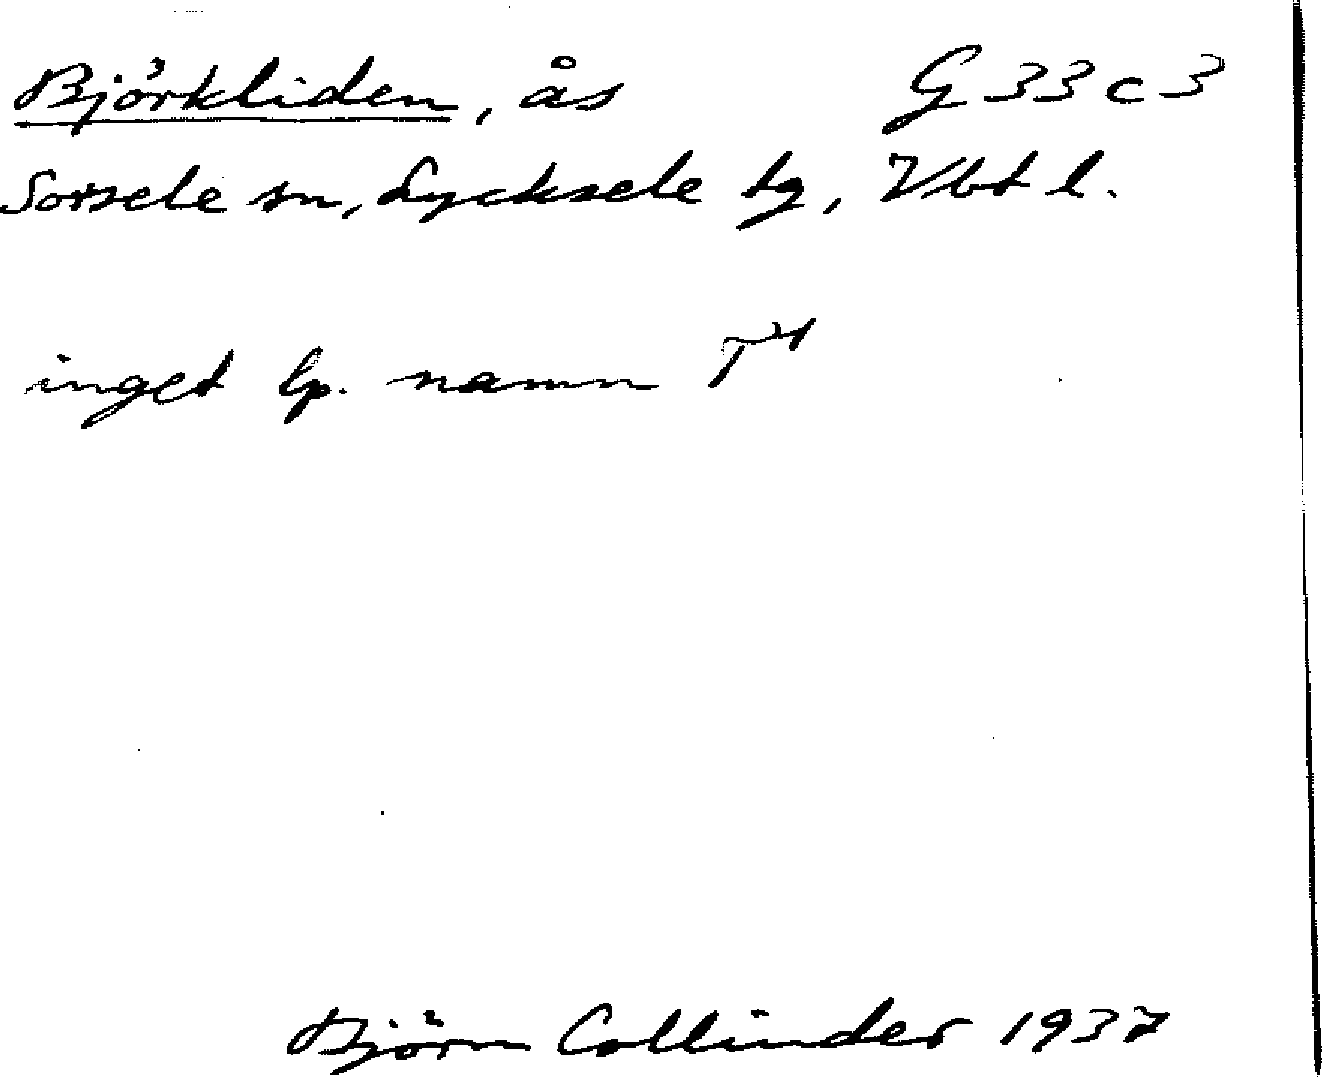 Björkliden, ås G 33 c 3
Sorsele sn, Lycksele tg, Vbt l.
inget lp. namn
Björn Collinder 1937